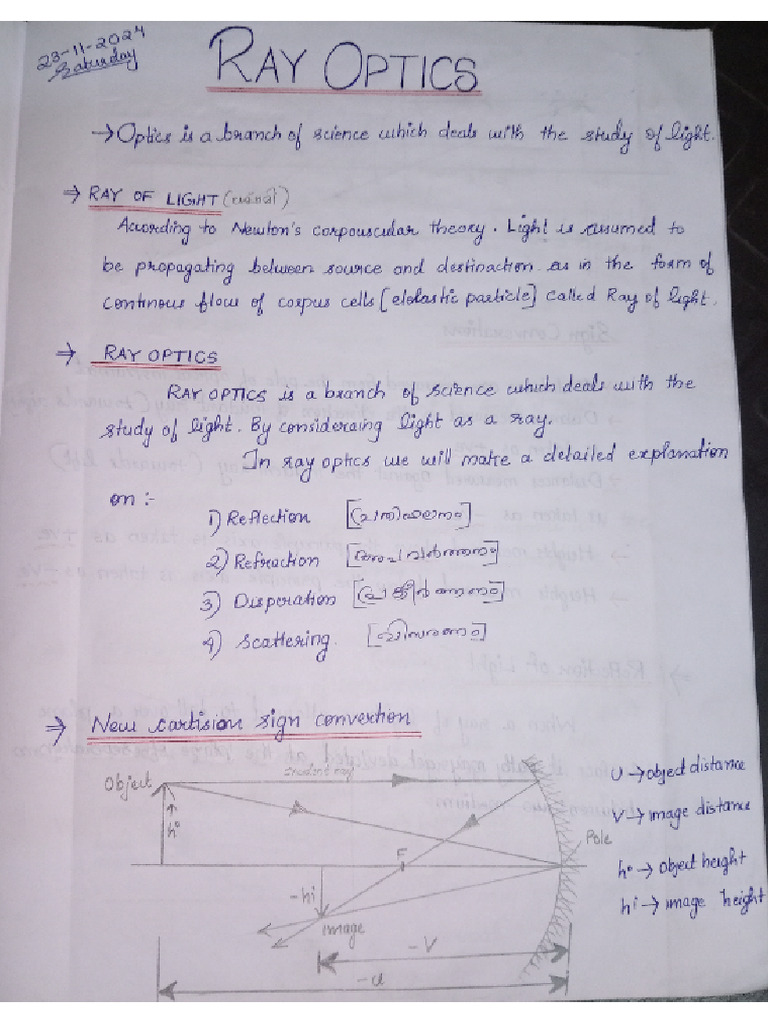 23-11-2024
Saturday
RAY OPTICS
→ Optics is a branch of science which deals with the study of light.
⇒ RAY OF LIGHT (രശ്മി)
According to Newton's corpouscular theory. Light is assumed to
be propagating between source and destinaction as in the form of
continous flow of corpus cells [elolastic particle] called Ray of light.
⇒ RAY OPTICS
RAY OPTICS is a branch of science which deals with the
study of light. By consideraing light as a ray.
In ray optics we will make a detailed explanation
on :-
1) Reflection [പ്രതിഫലനം]
2) Refraction [അപവർത്തനം]
3) Disperation [പ്രകീർണനം]
4) Scattering. [വിസരണം]
⇒ New cartision sign convertion
Object
Incident ray
U → object distance
V → image distance
Pole
h° → object height
hi → image height
h°
F
-hi
image
-V
-u